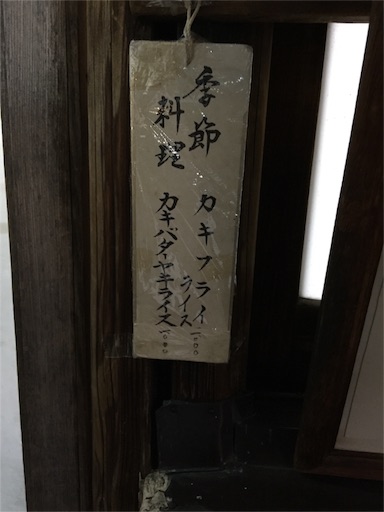 季節
料理
カキフライ
ライス
カキバターヤキライス